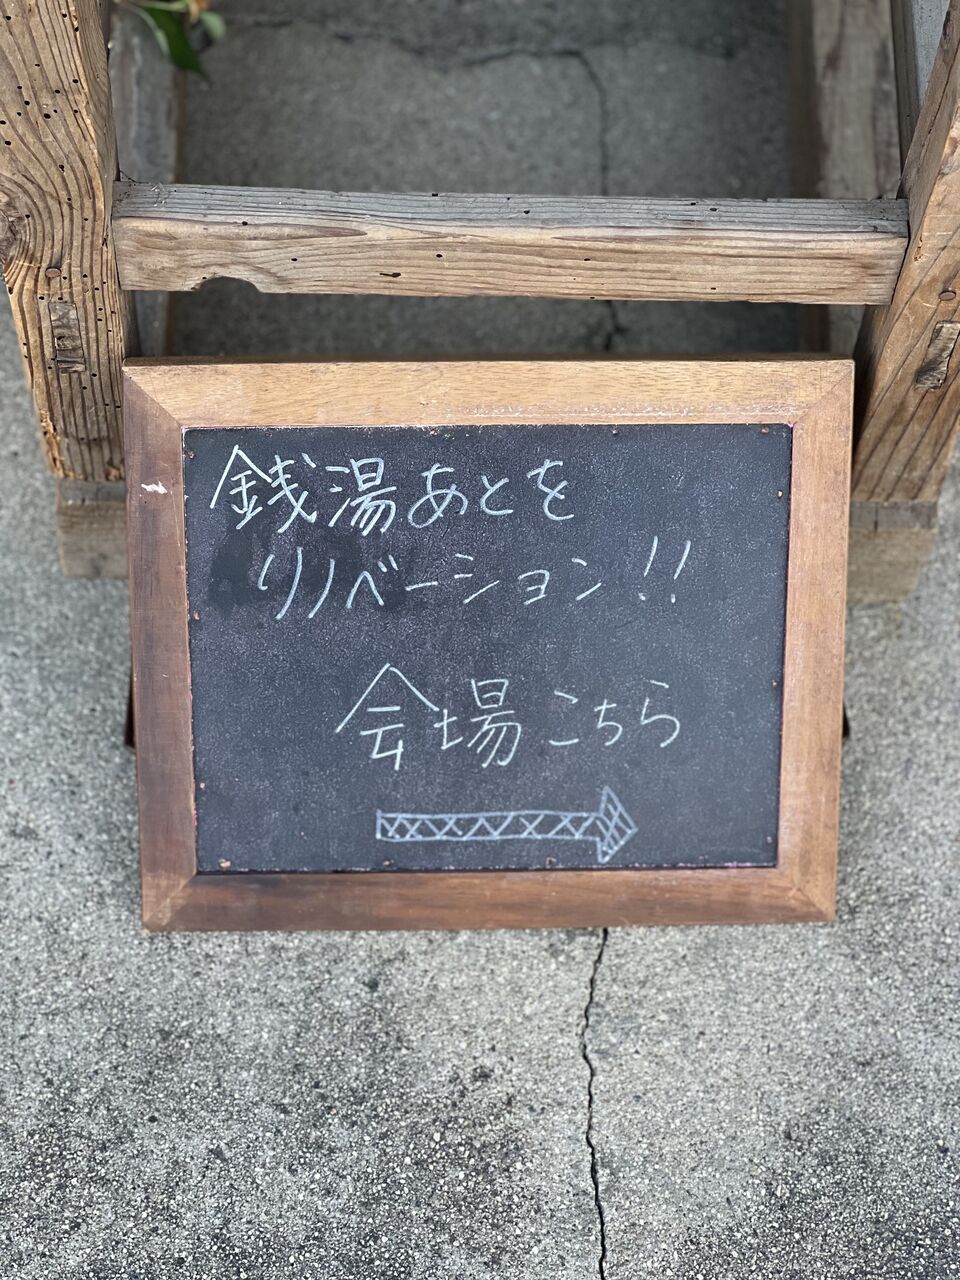 銭湯あとを
リノベーション!!
会場こちら